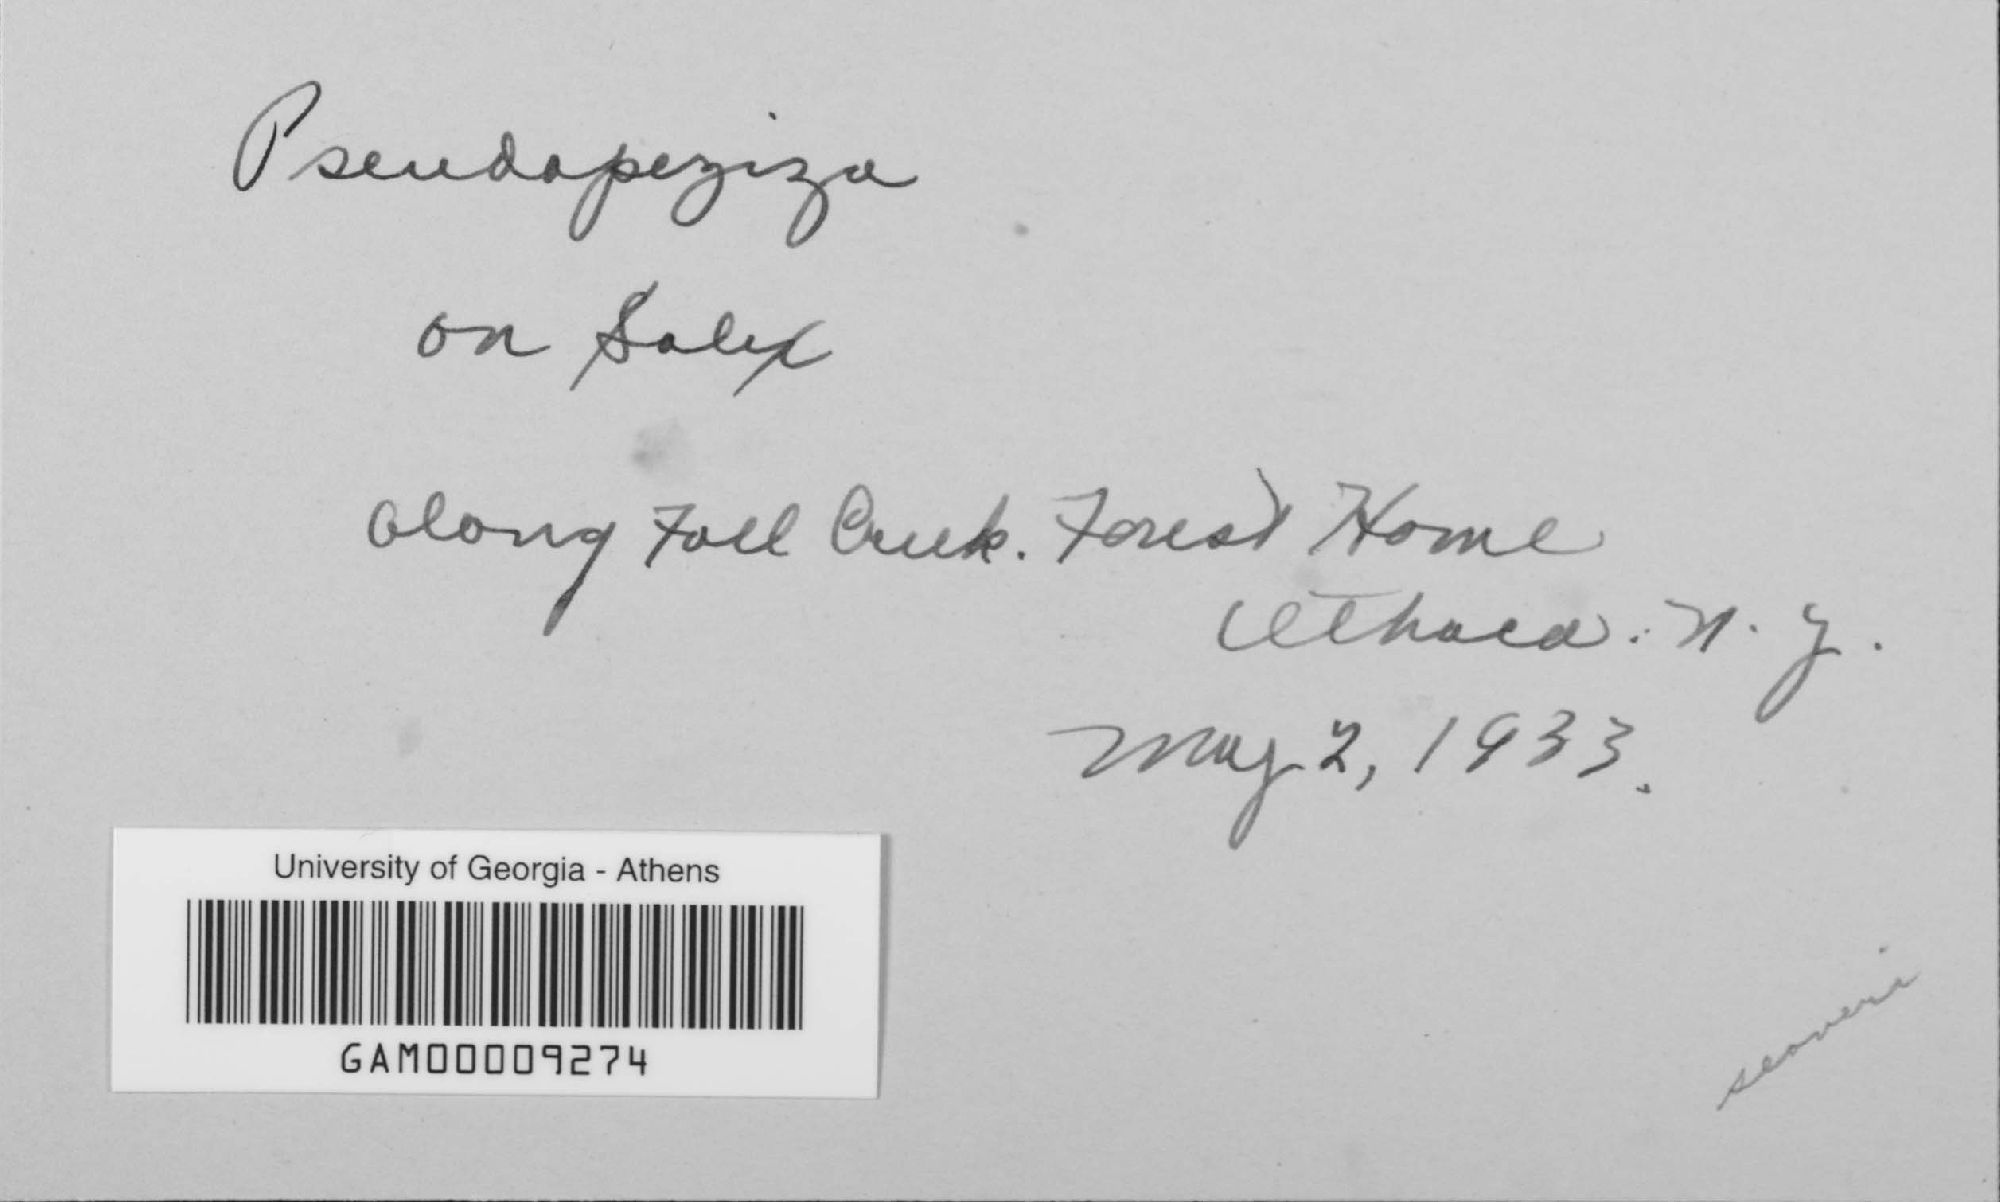 Pseudopeziza
on Salix
along Fall Creek. Forest Home
Ithaca. N. Y.
May 2, 1933.
University of Georgia - Athens
GAM00009274
seaveri